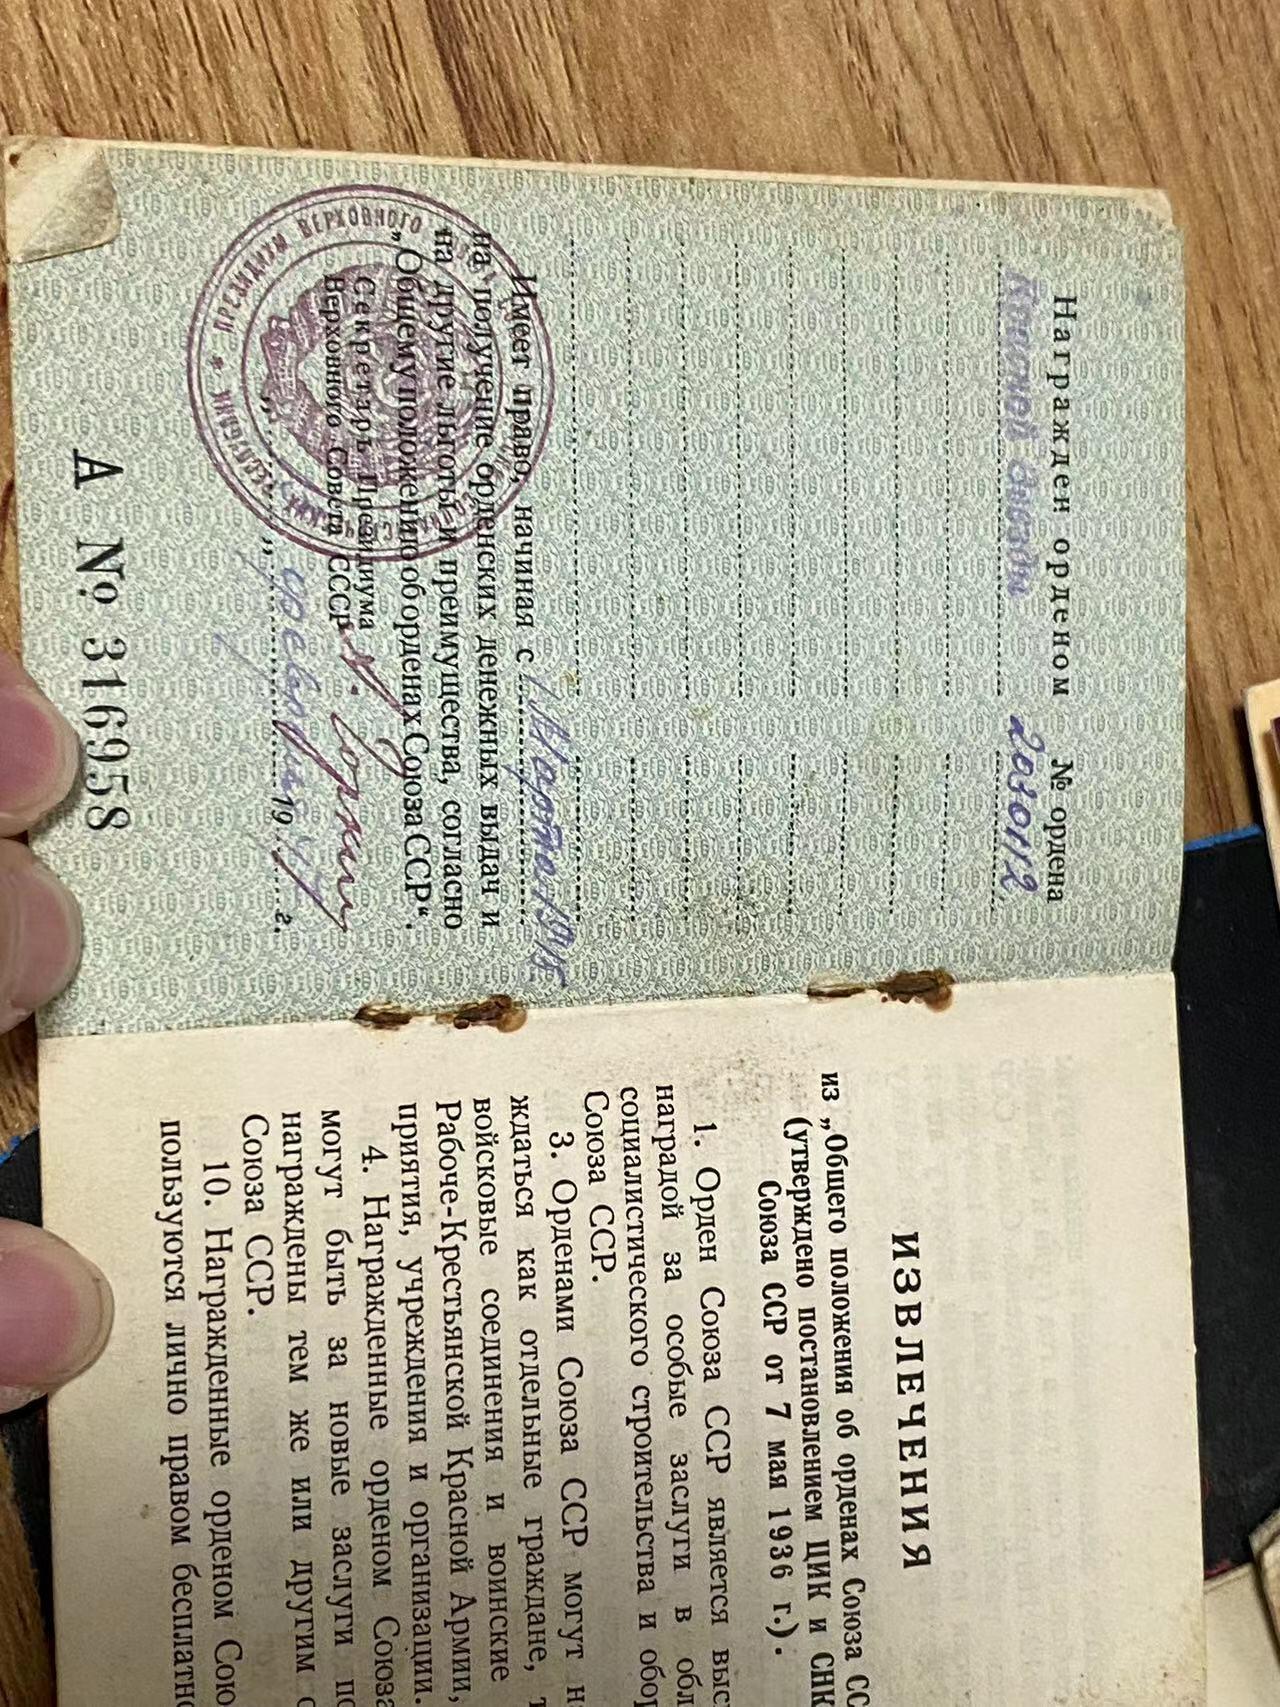 Награжден орденом № ордена
Красной Звезды 2030112
Имеет право, начиная с 1 Марта 1945
на получение орденских денежных выдач и
на другие льготы и преимущества, согласно
„Общему положению об орденах Союза ССР“.
Секретарь Президиума
Верховного Совета СССР
февраля 19 г.
А № 316958
ПРЕЗИДИУМ ВЕРХОВНОГО
ИЗВЛЕЧЕНИЯ
из „Общего положения об орденах Союза СС
(утверждено постановлением ЦИК и СНК
Союза ССР от 7 мая 1936 г.).
1. Орден Союза ССР является выс
наградой за особые заслуги в обл
социалистического строительства и обор
Союза ССР.
3. Орденами Союза ССР могут н
ждаться как отдельные граждане, т
войсковые соединения и воинские
Рабоче-Крестьянской Красной Армии,
приятия, учреждения и организации.
4. Награжденные орденом Союза
могут быть за новые заслуги по
награждены тем же или другим о
Союза ССР.
10. Награжденные орденом Сою
пользуются лично правом бесплатно